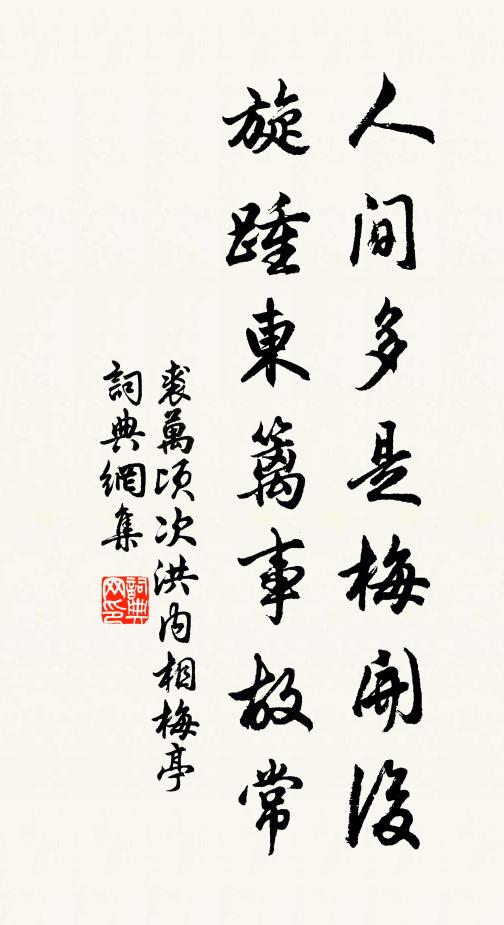 人間多是梅開後
旋踵東籬事故常
裘萬頃次洪內相梅亭
詞典網集
詞典
网印